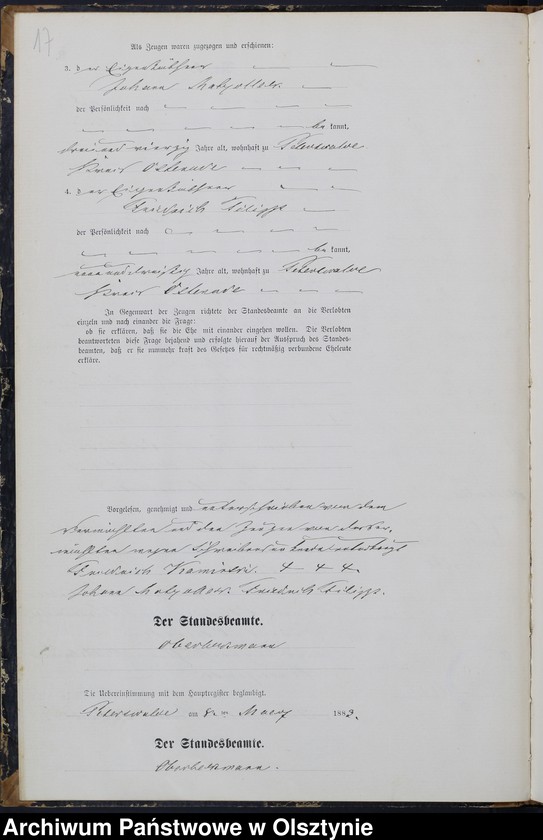 17
Als Zeugen waren zugezogen und erschienen:
3. der Eigenkäthner
Johann
der Persönlichkeit nach
be kannt,
dreiundvierzig Jahre alt, wohnhaft zu Peterswalde
Kreis Osterode
4. der Eigenkäthner
Friedrich Filipp
der Persönlichkeit nach
be kannt,
Jahre alt, wohnhaft zu Peterswalde
Kreis Osterode
In Gegenwart der Zeugen richtete der Standesbeamte an die Verlobten
einzeln und nach einander die Frage:
ob sie erklären, daß sie die Ehe mit einander eingehen wollen. Die Verlobten
beantworteten diese Frage bejahend und erfolgte hierauf der Ausspruch des Standes-
beamten, daß er sie nunmehr kraft des Gesetzes für rechtmäßig verbundene Eheleute
erkläre.
Vorgelesen, genehmigt und unterschrieben von dem
und den Zeugen von der
wegen unterkreuzt
Friedrich Kaminski. + + +.
Johann Friedrich Filipp.
Der Standesbeamte.
Die Uebereinstimmung mit dem Hauptregister beglaubigt.
Peterswalde am März 1883.
Der Standesbeamte.
Archiwum Państwowe w Olsztynie